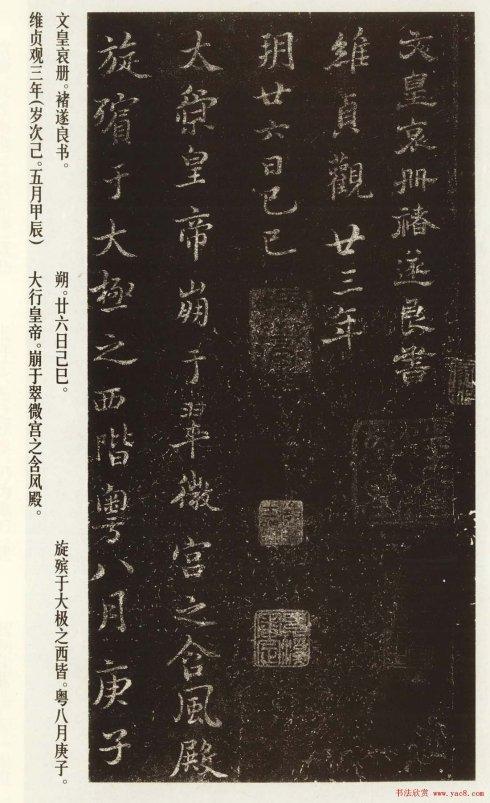 文皇哀册褚遂良书
維貞觀廿三年
朔廿六日己巳
大行皇帝崩于翠微宮之含風殿
旋殯于大極之西階粤八月庚子
文皇哀册。褚遂良书。
维贞观三年(岁次己。五月甲辰)
朔。廿六日己巳。
大行皇帝。崩于翠微宫之含风殿。
旋殡于大极之西皆。粤八月庚子。
书法欣赏 www.yac8.com